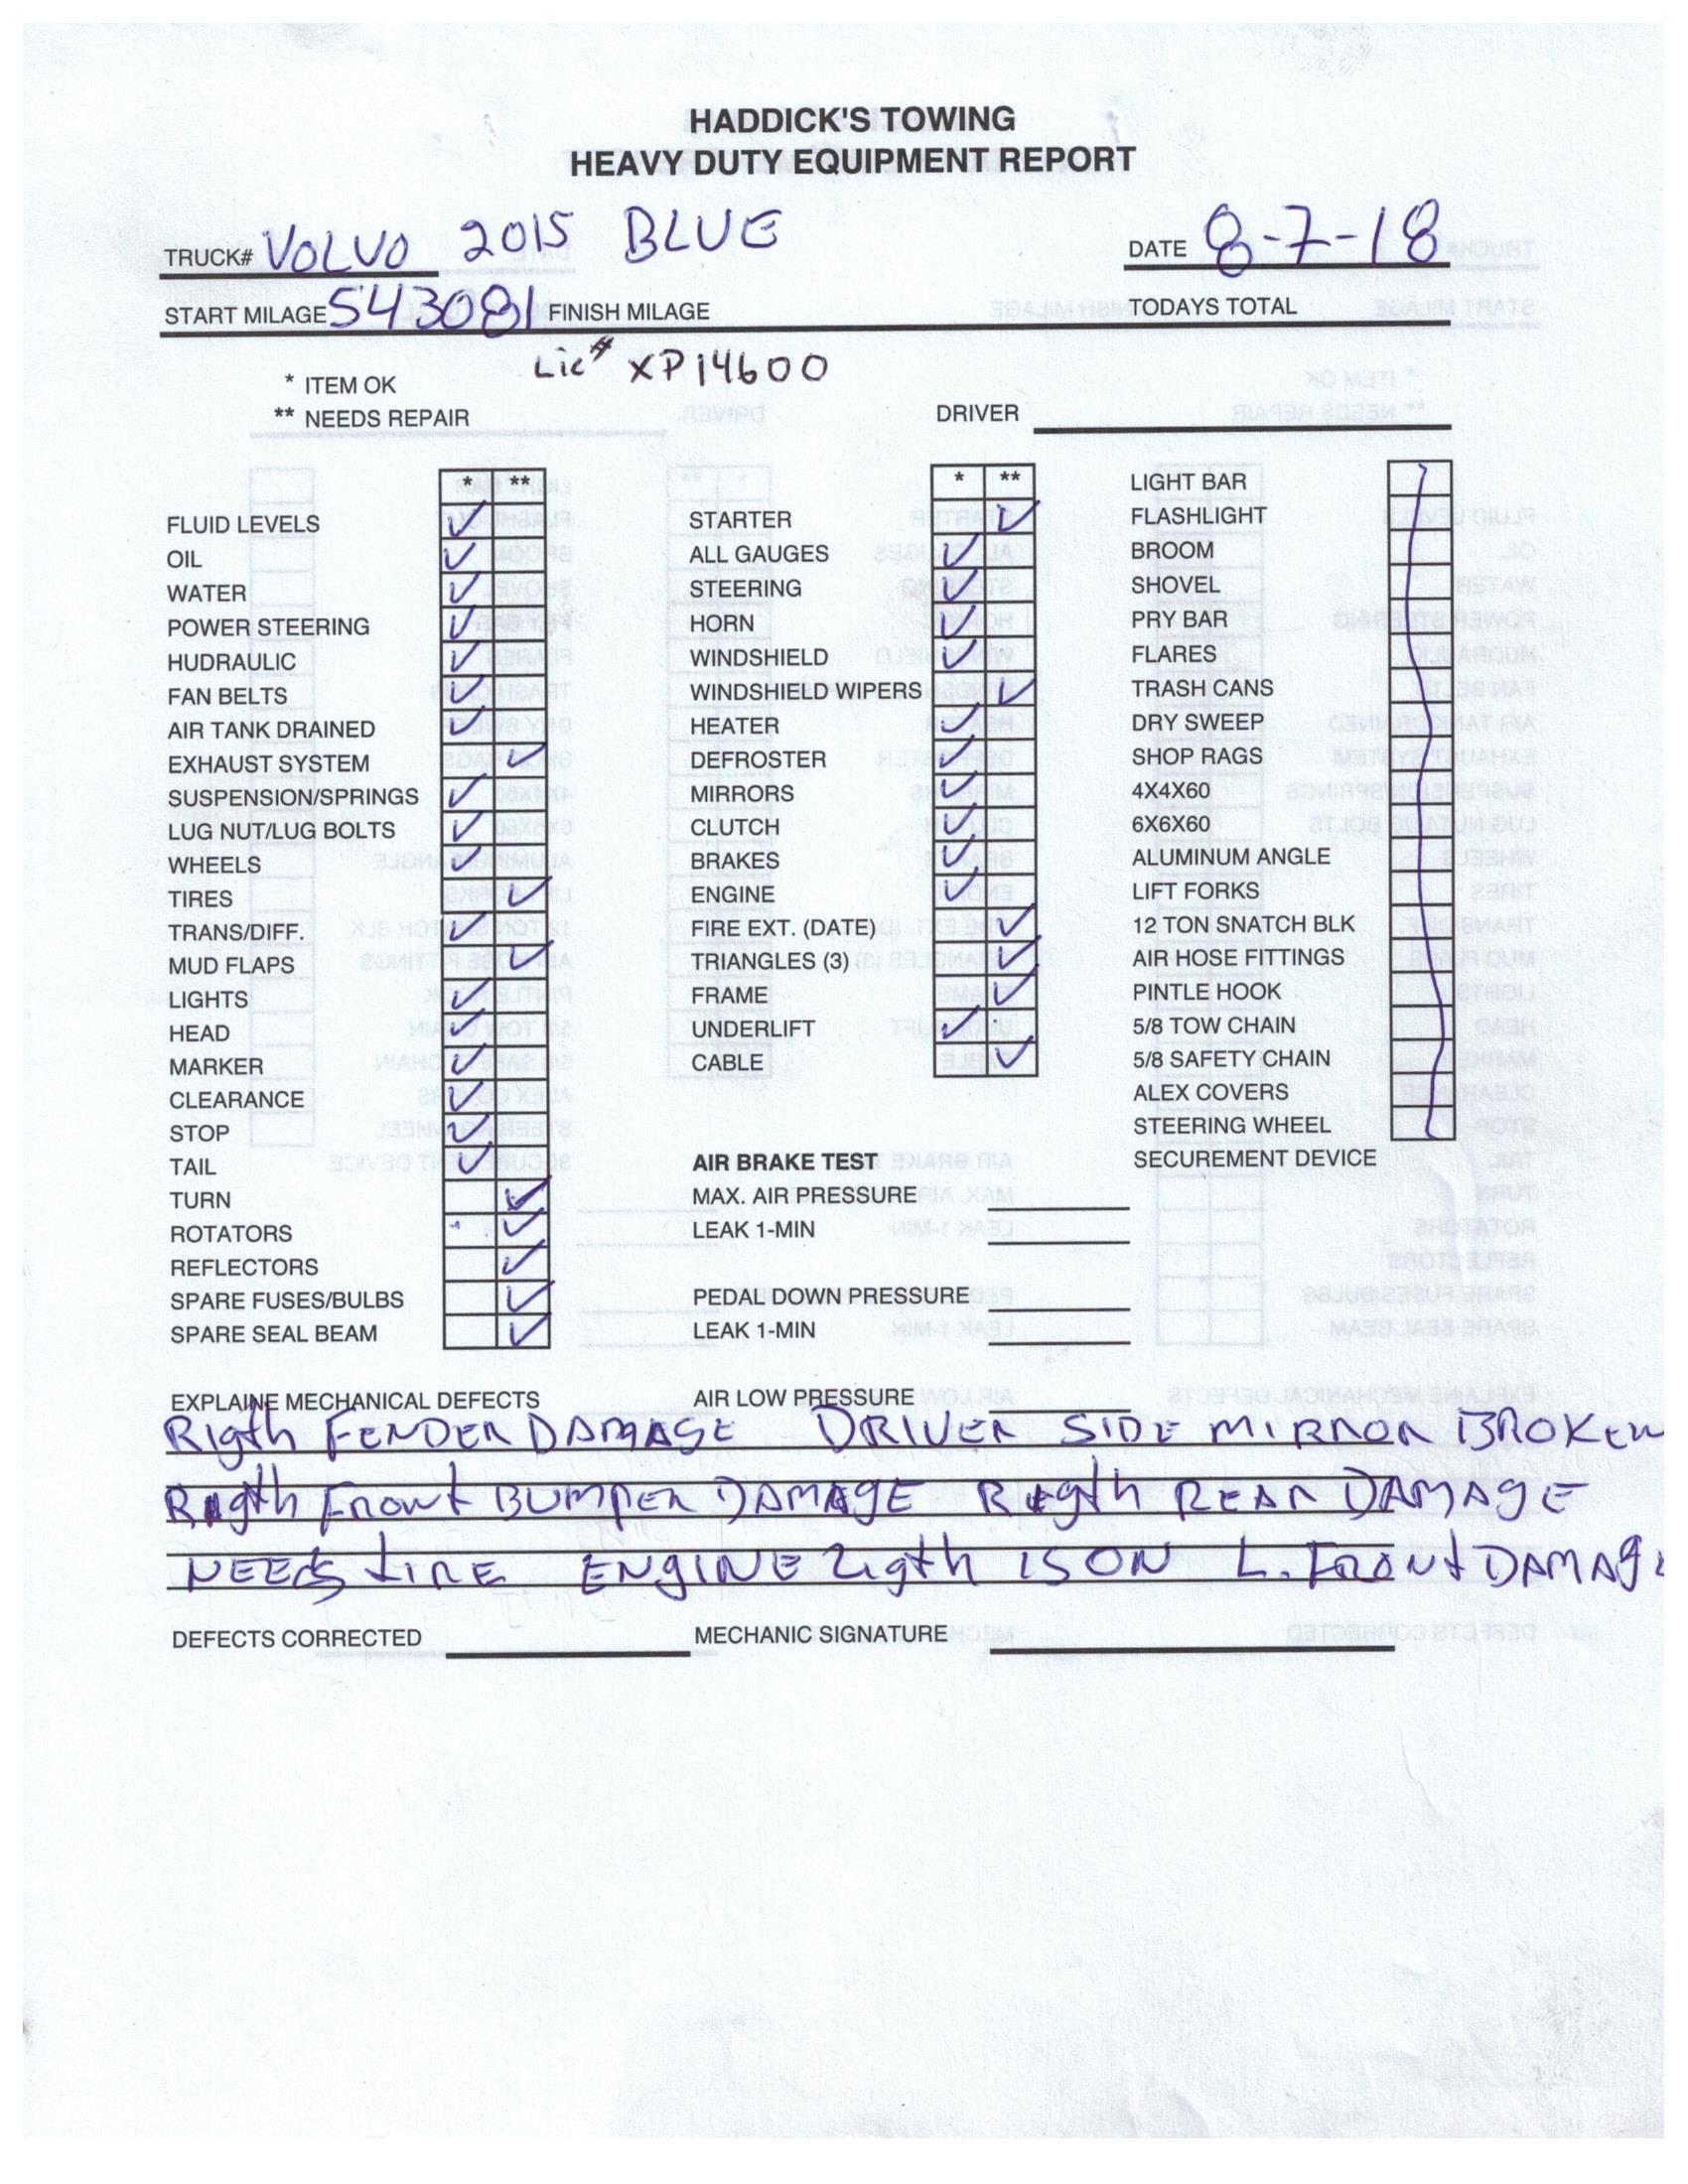 HADDICK'S TOWING
HEAVY DUTY EQUIPMENT REPORT
TRUCK# VOLVO 2015 BLUE DATE 8-7-18
START MILAGE 543081 FINISH MILAGE TODAYS TOTAL
Lic# XP14600
* ITEM OK
** NEEDS REPAIR DRIVER
* ** * ** LIGHT BAR
FLUID LEVELS ✓ STARTER ✓ FLASHLIGHT
OIL ✓ ALL GAUGES ✓ BROOM
WATER ✓ STEERING ✓ SHOVEL
POWER STEERING ✓ HORN ✓ PRY BAR
HUDRAULIC ✓ WINDSHIELD ✓ FLARES
FAN BELTS ✓ WINDSHIELD WIPERS ✓ TRASH CANS
AIR TANK DRAINED ✓ HEATER ✓ DRY SWEEP
EXHAUST SYSTEM ✓ DEFROSTER ✓ SHOP RAGS
SUSPENSION/SPRINGS ✓ MIRRORS ✓ 4X4X60
LUG NUT/LUG BOLTS ✓ CLUTCH ✓ 6X6X60
WHEELS ✓ BRAKES ✓ ALUMINUM ANGLE
TIRES ✓ ENGINE ✓ LIFT FORKS
TRANS/DIFF. ✓ FIRE EXT. (DATE) ✓ 12 TON SNATCH BLK
MUD FLAPS ✓ TRIANGLES (3) ✓ AIR HOSE FITTINGS
LIGHTS ✓ FRAME ✓ PINTLE HOOK
HEAD ✓ UNDERLIFT ✓ 5/8 TOW CHAIN
MARKER ✓ CABLE ✓ 5/8 SAFETY CHAIN
CLEARANCE ✓ ALEX COVERS
STOP ✓ STEERING WHEEL
TAIL ✓ AIR BRAKE TEST SECUREMENT DEVICE
TURN ✓ MAX. AIR PRESSURE
ROTATORS ✓ LEAK 1-MIN
REFLECTORS ✓
SPARE FUSES/BULBS ✓ PEDAL DOWN PRESSURE
SPARE SEAL BEAM ✓ LEAK 1-MIN
EXPLAINE MECHANICAL DEFECTS AIR LOW PRESSURE
Rigth FENDER DAMAGE DRIVER SIDE MIRROR BROKEN
Rigth FRONT BUMPER DAMAGE Rigth REAR DAMAGE
NEEDS tIRE ENGINE Ligth IS ON L. FRONT DAMAGE
DEFECTS CORRECTED MECHANIC SIGNATURE